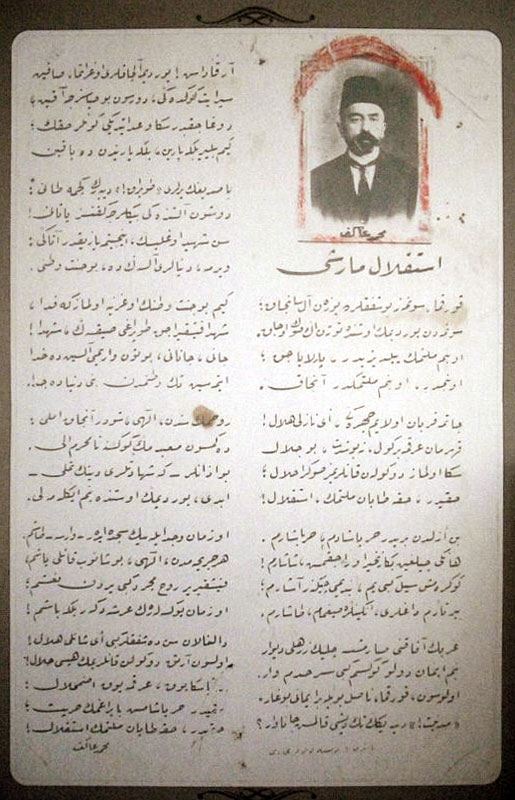 محمد عاكف
استقلال مارشى
قورقما، سونمز بو شفقلرده يوزن آل سانجاق؛
سونمدن يوردمك اوستنده توتن اك صوك اوجاق.
او بنم ملتمك ييلديزيدر، پارلاياجق؛
او بنمدر، او بنم ملتمكدر آنجاق.
چاتمه قربان اولايم چهره كى، اى نازلى هلال!
قهرمان عرقمه بر كول.. نه بو شدت، بو جلال؟
سكا اولماز دوكولن قانلريمز صوكرا حلال؛
حقيدر، حقه طاپان ملتمك، استقلال!
بن ازلدن بريدر حر ياشادم، حر ياشارم.
هانكى چيلغين بكا زنجير اوراجقمش، شاشارم!
كوكره مش سيل كبى يم، بنديمى چيكنر آشارم؛
ييرتارم طاغلرى، انكينلره صيغمام، طاشارم.
غربك آفاقنى صارمشسه چليك زرهلى ديوار
بنم ايمان دولو كوكسم كبى سرحدم وار.
اولوسون، قورقما، ناصل بويله بر ايمانى بوغار،
«مدنيت!» ديديكك تك ديشى قالمش جاناوار؟
آرقداش! يورديمه آلچاقلرى اوغراتما، صاقين
سپر ايت كوكده كى، دورسون بو حياسزجه آقين؛
دوغاجقدر سكا وعد ايتديكى كونلر حقك؛
كيم بيلير، بلكه يارين، بلكه ياريندن ده ياقين
باصديغك يرلرى «طوپراق!» دييه رك كچمه، طانى!
دوشون آلتنده كى بيكلرجه كفنسز ياتانى!
سن شهيد اوغليسك، اينجيتمه، يازيقدر، آتاكى؛
ويرمه، دنيالرى آلسه ك ده، بو جنت وطنى.
كيم بو جنت وطنك اوغرينه اولماز كه فدا،
شهدا فيشقيراجق طوپراغى صيقسه ك، شهدا!
جانى، جانانى، بوتون وارمى آلسين ده خدا
ايتمه سين تك وطنمدن بنى دنياده جدا.
روحمك سندن، الهى، شودر آنجاق املى؛
ده كمسون معبدمك كوكسنه نامحرم الى.
بو اذانلر ـ كه شهادتلرى دينك تملى ـ
ابدى، يوردمك اوستنده بنم ايكله ملى.
او زمان وجد ايله بيك سجده ايدر ـ وارسه ـ طاشم
هر جريحه مدن، الهى، بوشانوب قانلى ياشم،
فيشقيرير روح مجرد كبى يردن نعشم؛
او زمان يوكسله رك عرشه دكر بلكه باشم!
دالغالان سن ده شفقلر كبى اى شانلى هلال!
اولسون آرتق دوكولن قانلريمك هپسى حلال!
ابديا سكا يوق، عرقمه يوق اضمحلال؛
حقيدر، حر ياشامش بايراغمك حريت؛
حقيدر، حقه طاپان ملتمك استقلال!
محمد عاكف